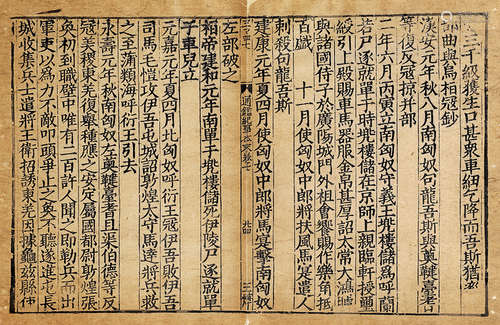 三千級獲生口甚衆車紐乞降而吾斯猶
部曲與烏桓冦鈔
漢安元年秋八月南匈奴句龍吾斯與薁鞬臺耆
等復反冦掠幷部
二年六月丙寅立南匈奴守義王兠樓儲爲呼蘭
若尸逐就單于時兠樓儲在京師上親臨軒授璽
綬引上殿賜車馬器服金帛甚厚詔太常大鴻臚
與諸國侍子於廣陽城門外祖會饗賜作樂角抵
百戲　十一月使匈奴中郎將扶風馬寔遣人
刺殺句龍吾斯
建康元年夏四月使匈奴中郎將馬寔擊南匈奴
通鑑紀事本末卷七
左部破之
桓帝建和元年南單于兠樓儲死伊陵尸逐就單
于車兒立
元嘉元年夏四月北匈奴呼衍王冦伊吾敗伊吾
司馬毛愷攻伊吾屯城詔敦煌太守馬達將兵救
之至蒲類海呼衍王引去
永壽元年秋南匈奴左薁鞬臺耆且渠伯德等反
冦美稷東羌復舉種應之安定屬國都尉敦煌張
奐初到職壁中唯有二百許人聞之即勒兵而出
軍吏以爲力不敵叩頭爭止之奐不聽遂進屯長
城收集兵士遣將王衛招誘東羌因據龜兹縣使